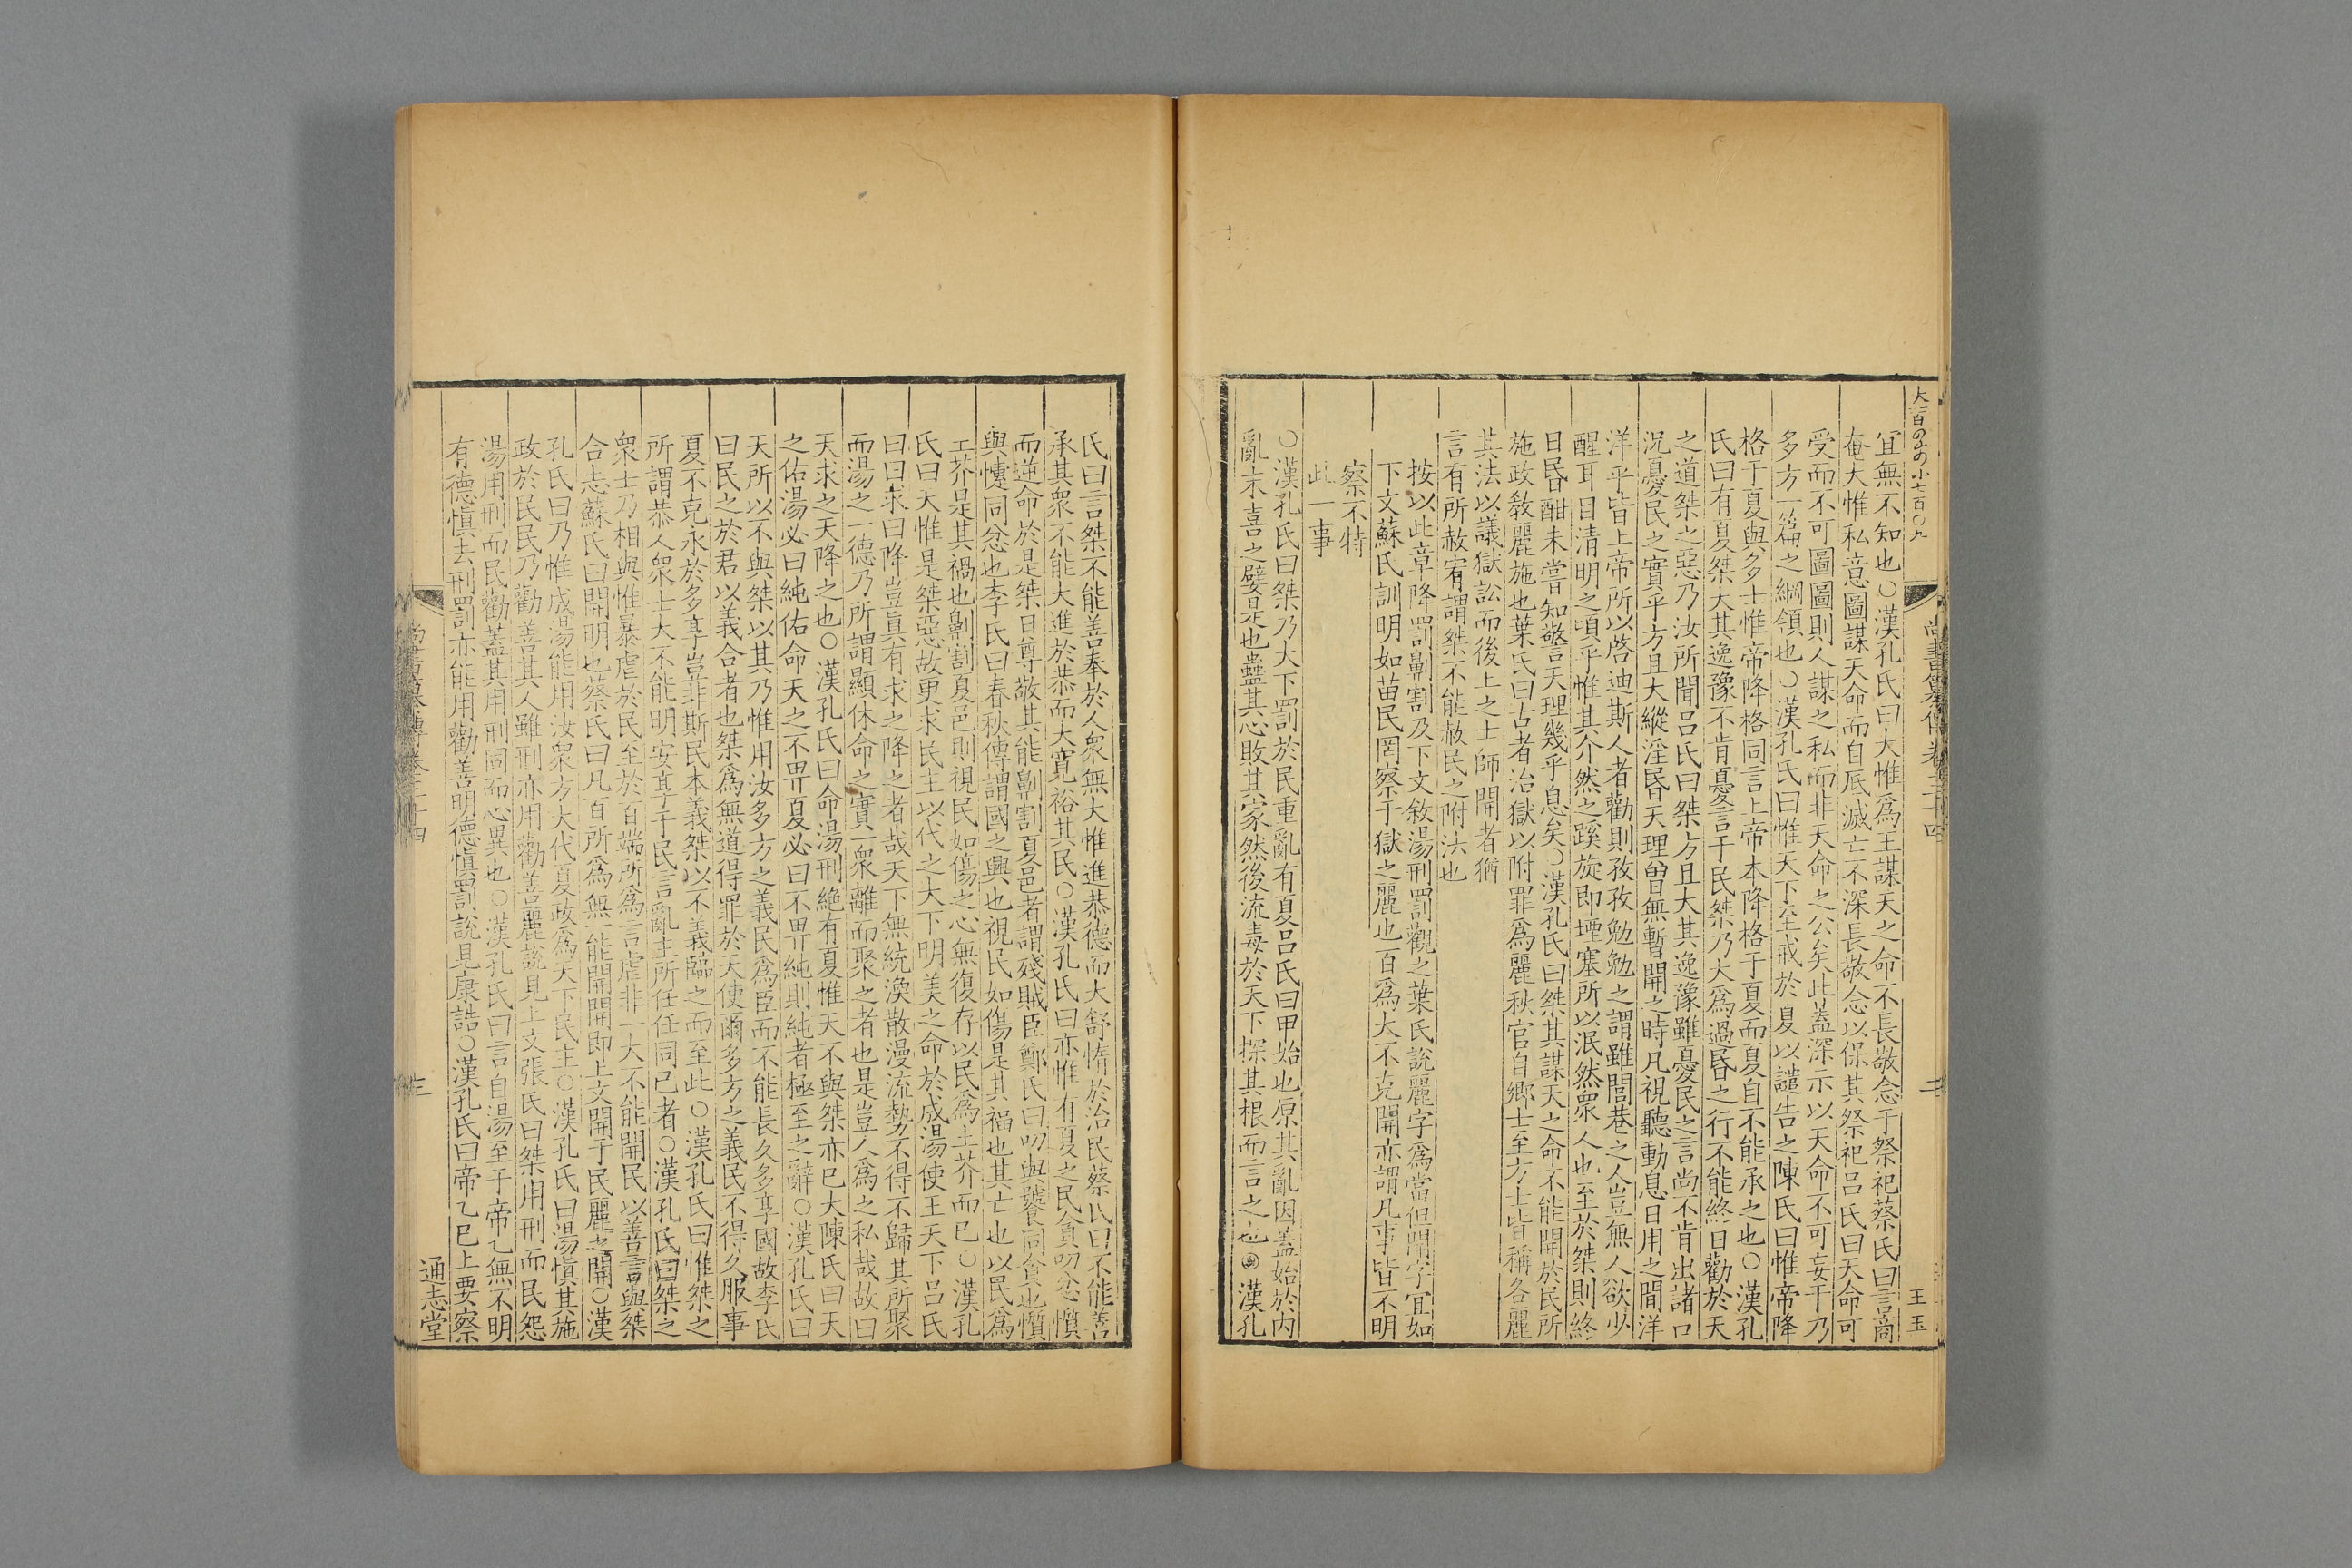 宜無不知也○漢孔氏曰大惟爲王謀天之命不長敬念于祭祀蔡氏曰言商
奄大惟私意圖謀天命而自厎滅亡不深長敬念以保其祭祀呂氏曰天命可
受而不可圖圖則人謀之私而非天命之公矣此蓋深示以天命不可妄干乃
多方一篇之綱領也○漢孔氏曰惟天下至戒於夏以譴告之陳氏曰惟帝降
格于夏與多士惟帝降格同言上帝本降格于夏而夏自不能承之也○漢孔
氏曰有夏桀大其逸豫不肯憂言于民桀乃大爲過昏之行不能終日勸於天
之道桀之惡乃汝所聞呂氏曰桀方且大其逸豫雖憂民之言尚不肯出諸口
況憂民之實乎方且大縱淫昏天理曾無暫開之時凡視聽動息日用之間洋
洋乎皆上帝所以啓迪斯人者勸則孜孜勉勉之謂雖閭巷之人豈無人欲少
醒耳目清明之頃乎惟其介然之蹊旋即堙塞所以泯然衆人也至於桀則終
日昏酣未嘗知警言天理幾乎息矣○漢孔氏曰桀其謀天之命不能開於民所
施政教麗施也葉氏曰古者治獄以附罪爲麗秋官自鄉士至方士皆稱各麗
其法以議獄訟而後上之士師開者猶
言有所赦宥謂桀不能赦民之附法也
按以此章降罰劓割及下文敘湯刑罰觀之葉氏說麗字爲當但開字宜如
下文蘇氏訓明如苗民罔察于獄之麗也百爲大不克開亦謂凡事皆不明
察不特
此一事
○漢孔氏曰桀乃大下罰於民重亂有夏呂氏曰甲始也原其亂因蓋始於内
亂末喜之嬖是也蠱其心敗其家然後流毒於天下探其根而言之也 漢孔
尚書纂傳卷三十四
二
王玉
氏曰言桀不能善奉於人衆無大惟進恭德而大舒惰於治民蔡氏曰不能善
承其衆不能大進於恭而大寬裕其民○漢孔氏曰亦惟有夏之民貪叨忿懫
而逆命於是桀日尊敬其能劓割夏邑者謂殘賊臣鄭氏曰叨與饕同貪也懫
與懥同忿也李氏曰春秋傳謂國之興也視民如傷是其福也其亡也以民爲
土芥是其禍也劓割夏邑則視民如傷之心無復存以民爲土芥而已○漢孔
氏曰天惟是桀惡故更求民主以代之大下明美之命於成湯使王天下呂氏
曰曰求曰降豈眞有求之降之者哉天下無統渙散漫流勢不得不歸其所聚
而湯之一德乃所謂顯休命之實一衆離而聚之者也是豈人爲之私哉故曰
天求之天降之也○漢孔氏曰命湯刑絶有夏惟天不與桀亦已大陳氏曰天
之佑湯必曰純佑命天之不畀夏必曰不畀純則純者極至之辭○漢孔氏曰
天所以不與桀以其乃惟用汝多方之義民爲臣而不能長久多享國故李氏
曰民之於君以義合者也桀爲無道得罪於天使爾多方之義民不得久服事
夏不克永於多享豈非斯民本義桀以不義臨之而至此○漢孔氏曰惟桀之
所謂恭人衆士大不能明安享于民言亂主所任任同己者○漢孔氏曰桀之
衆士乃相與惟暴虐於民至於百端所爲言虐非一大不能開民以善言與桀
合志蘇氏曰開明也蔡氏曰凡百所爲無一能開開即上文開于民麗之開○漢
孔氏曰乃惟成湯能用汝衆方大代夏政爲天下民主○漢孔氏曰湯愼其施
政於民民乃勸善其人雖刑亦用勸善麗說見上文張氏曰桀用刑而民怨
湯用刑而民勸蓋其用刑同而心異也○漢孔氏曰言自湯至于帝乙無不明
有德愼去刑罰亦能用勸善明德愼罰說見康誥○漢孔氏曰帝乙已上要察
三
通志堂